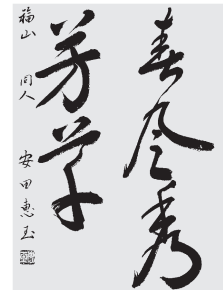 春風秀
芳草
福山 同人 安田惠玉